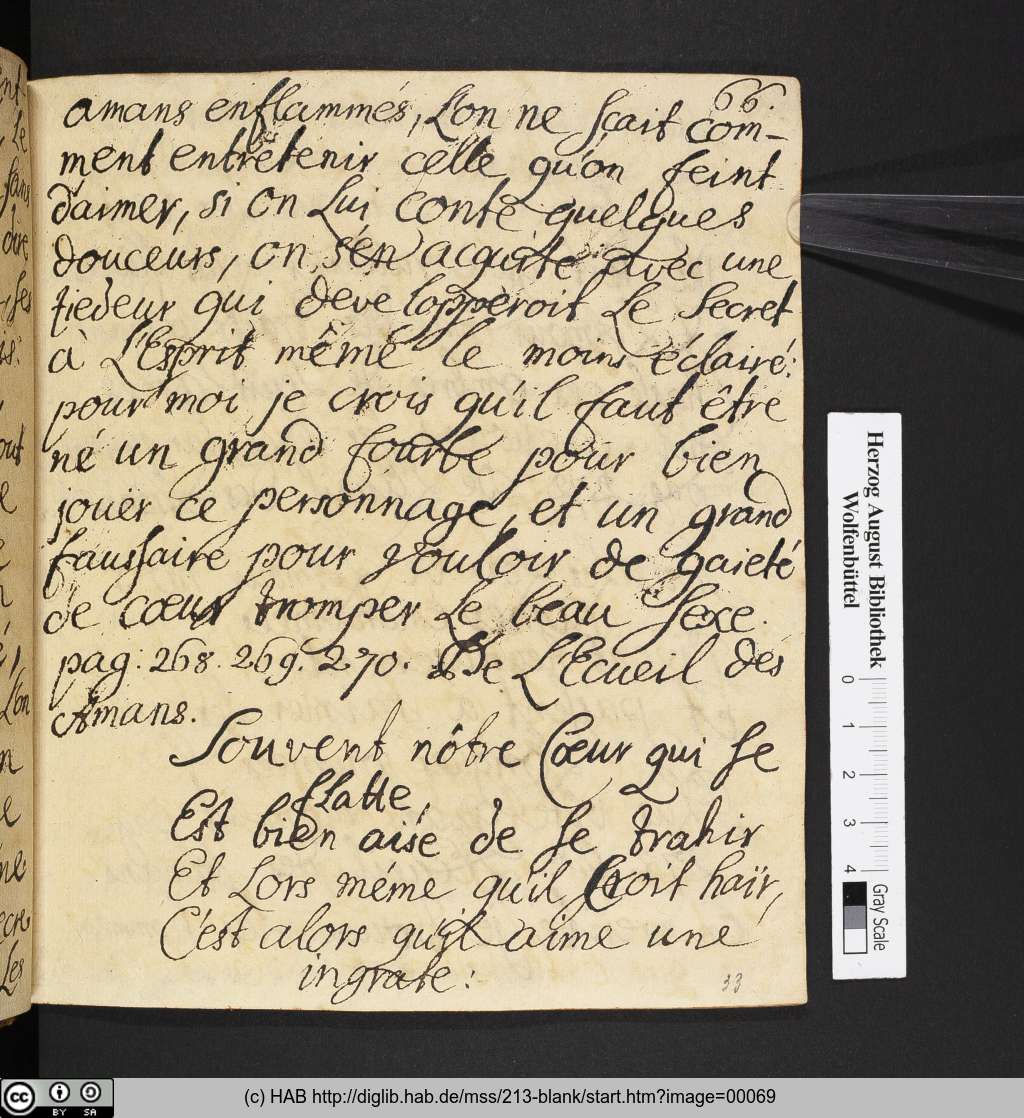 66.
amans enflammés, L'on ne sçait com-
ment entrêtenir celle qu'on feint
d'aimer, si on Lui conte quelques
douceurs, on s'en acquite avec une
tiedeur qui developperoit Le Secret
à L'Esprit mêmé le moins éclairé:
pour moi je crois qu'il faut être
né un grand fourbe pour bien
jouër ce personnage, et un grand
faussaire pour vouloir de gaieté
de cœur tromper Le beau Sexe.
pag: 268. 269. 270. De L'Ecueil des
Amans.
Souvent nôtre Cœur qui se
flatte,
Est bien aise de se trahir
Et Lors méme qu'il Croit haïr,
C'est alors qu'il aime une
ingrate:
33
Herzog August Bibliothek
Wolfenbüttel
0 1 2 3 4
Gray Scale
cc BY SA
(c) HAB http://diglib.hab.de/mss/213-blank/start.htm?image=00069